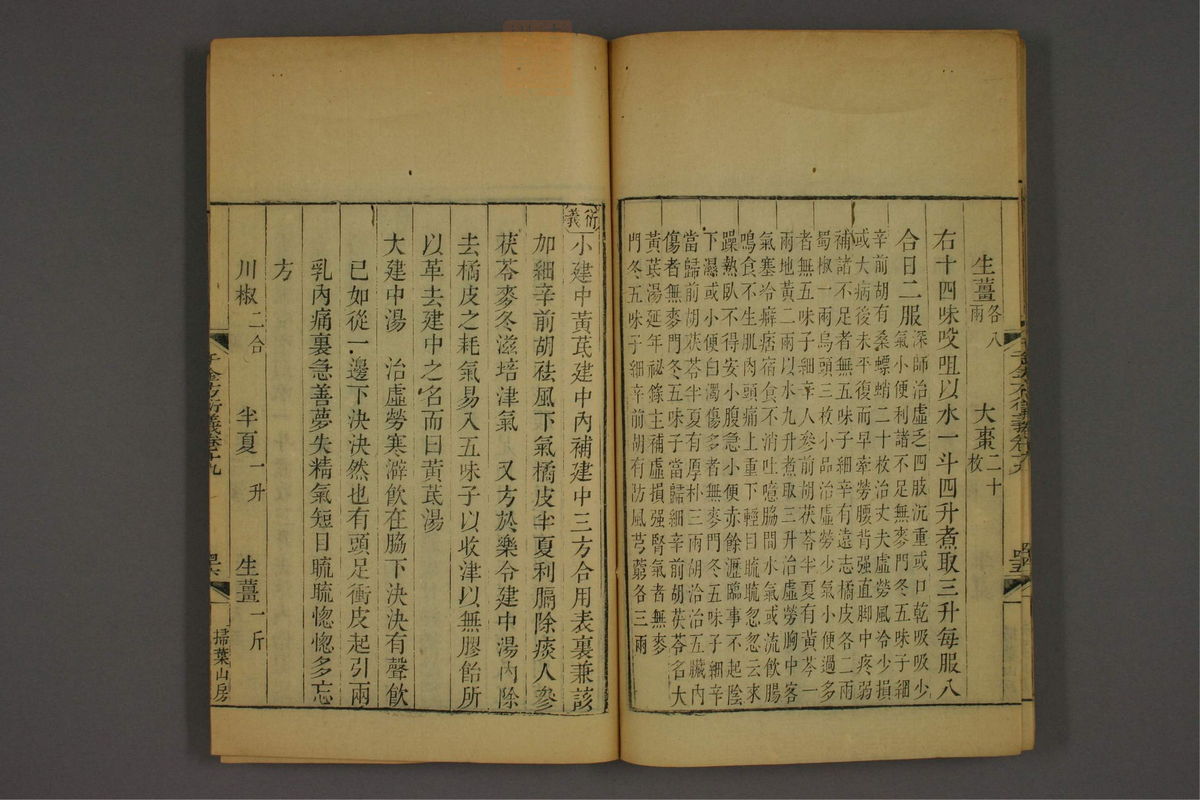 生薑各八兩　大棗二十枚
右十四味㕮咀以水一斗四升煮取三升每服八
合日二服深師治虛乏四肢沉重或口乾吸吸少
氣小便利諸不足無麥門冬五味子細
辛前胡有桑螵蛸二十枚治丈夫虛勞風冷少損
或大病後未平復而早牽勞腰背强直脚中疼弱
補諸不足者無五味子細辛有遠志橘皮各二兩
蜀椒一兩烏頭三枚小品治虛勞少氣小便過多
者無五味子細辛人參前胡茯苓半夏有黃芩一
兩地黃二兩以水九升煮取三升治虛勞胸中客
氣塞冷癖痞宿食不消吐噫脇間水氣或流飲腸
鳴食不生肌肉頭痛上重下輕目䀮䀮忽忽云來
躁熱臥不得安小腹急小便赤餘瀝臨事不起陰
下濕或小便白濁傷多者無麥門冬五味子細辛
當歸前胡茯苓半夏有厚朴三兩胡洽治五臟内
傷者無麥門冬五味子當歸細辛前胡茯苓名大
黃茋湯延年祕錄主補虛損强腎氣者無麥
門冬五味子細辛前胡有防風芎藭各三兩
衍義
小建中黃茋建中內補建中三方合用表裏兼該
加細辛前胡祛風下氣橘皮半夏利膈除痰人參
茯苓麥冬滋培津氣　又方於樂令建中湯內除
去橘皮之耗氣易入五味子以收津以無膠飴所
以革去建中之名而曰黃茋湯
大建中湯　治虛勞寒澼飲在脇下決決有聲飲
已如從一邊下決決然也有頭足衝皮起引兩
乳內痛裏急善夢失精氣短目䀮䀮惚惚多忘
方
川椒二合　半夏一升　生薑一斤
千金方衍義卷十九
掃葉山房